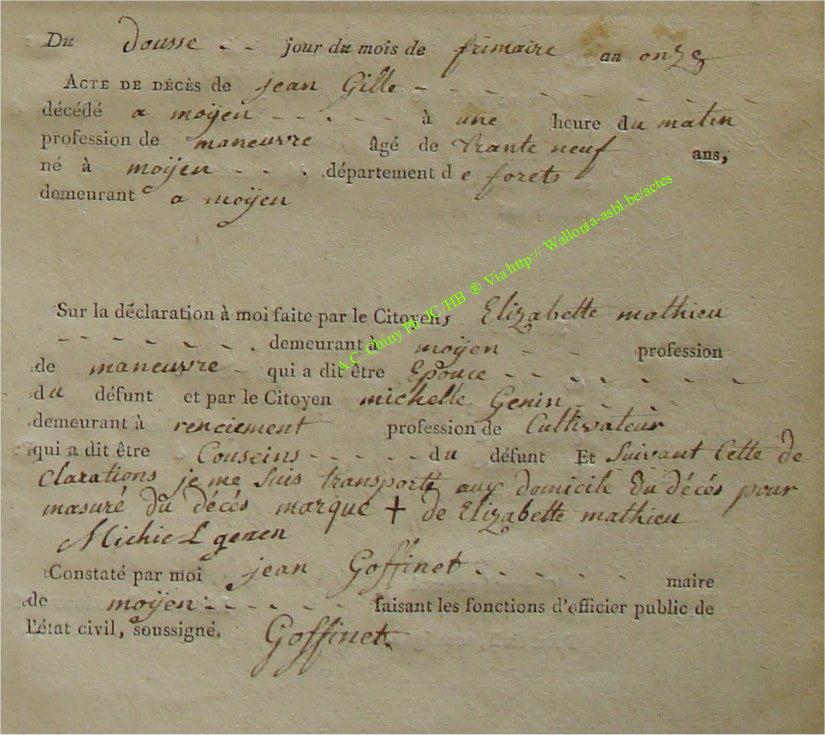 Du dousse - - jour du mois de frimaire an onze
ACTE DE DÉCÈS de jean Gille - - - - - - - -
décédé a moÿen - - - - - à une heure du matin
profession de maneuvre âgé de trante neuf ans,
né à moÿen - - . département de forets
demeurant a moÿen
A.C. Chiny Ph JC/HB ® Via http:// Wallonia-asbl.be/actes
Sur la déclaration à moi faite par le Citoyens Elizabette mathieu
- - - - - - . demeurant à moÿen - - profession
de maneuvre - qui a dit être Epouce - - - - - - -
du défunt et par le Citoyen michelle Genin - - -
demeurant à renciement profession de Cultivateur
qui a dit être Couseins - - - - - du défunt Et Suivant Cette de
clarations je me suis transporté aux domicile du décés pour
masuré du décés marque + de Elizabette mathieu
Michiel genen
Constaté par moi jean Goffinet - - - - - maire
de moÿen - - - - - faisant les fonctions d'officier public de
l'état civil, soussigné. Goffinet